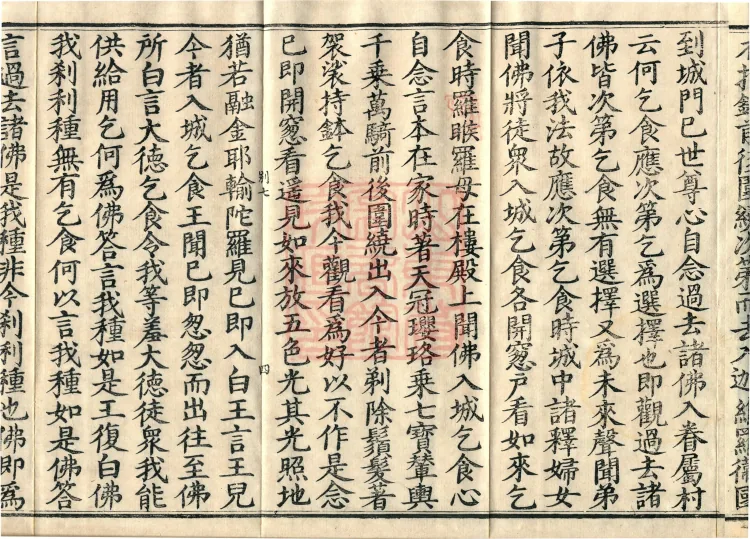 衣持鉢前後圍繞次第而去入迦維羅衛國
到城門已世尊心自念過去諸佛入眷屬村
云何乞食應次第乞爲選擇也即觀過去諸
佛皆次第乞食無有選擇又爲未來聲聞弟
子依我法故應次第乞食時城中諸釋婦女
聞佛將徒衆入城乞食各開窻戸看如來乞
食時羅睺羅母在樓殿上聞佛入城乞食心
自念言本在家時著天冠瓔珞乘七寶輦輿
千乘萬騎前後圍繞出入今者剃除鬚髮著
袈裟持鉢乞食我今觀看爲好以不作是念
已即開窻看遥見如來放五色光其光照地
別七
四
猶若融金耶輸陀羅見已即入白王言王兒
今者入城乞食王聞已即怱怱而出往至佛
所白言大德乞食令我等羞大德徒衆我能
供給用乞何爲佛答言我種如是王復白佛
我刹利種無有乞食何以言我種如是佛答
言過去諸佛是我種非今刹利種也佛即爲